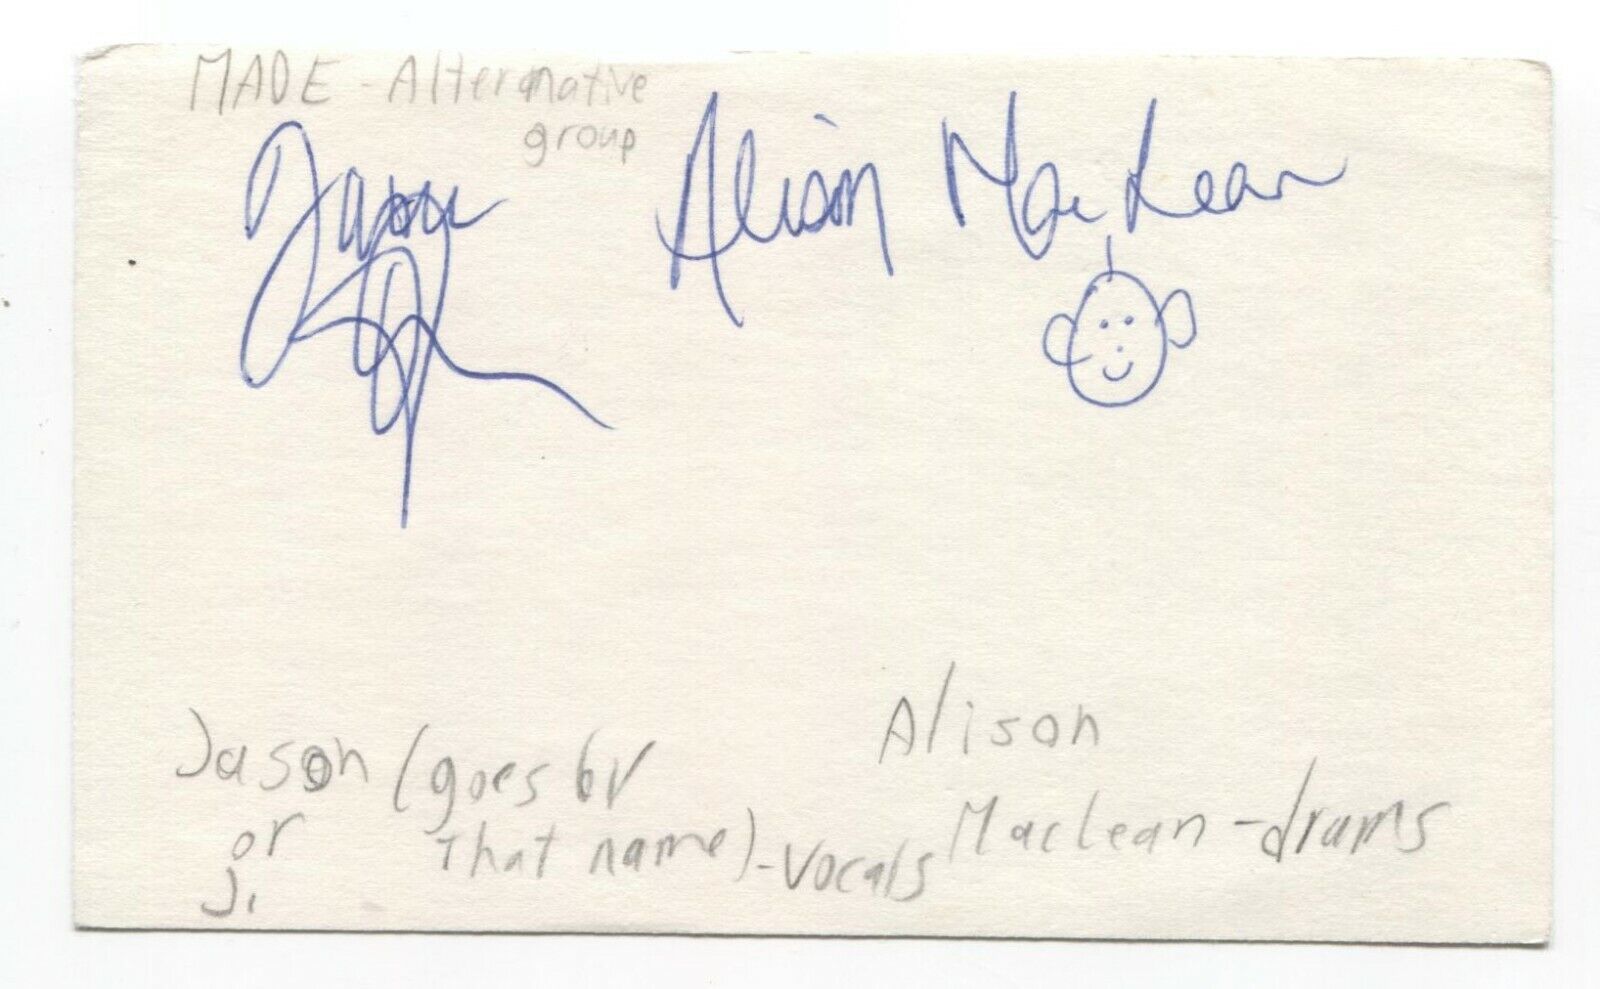 MADE - Alternative
group
Jason
Alison MacLean
Jason (goes by
or That name) - Vocals
J.
Alison
MacLean - drums